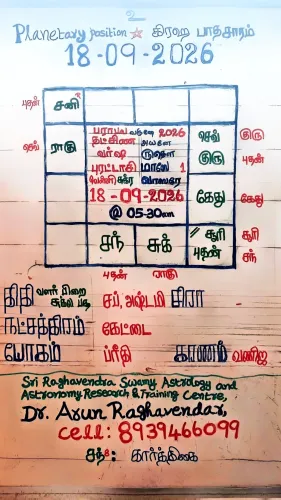 2
Planetary position ☆ கிரஹ பாதசாரம்
18-09-2026
புதன் சனி
பராபவ வருஷ 2026
தட்சிண அயன
செவ் ராகு வர்ஷ ருதௌ செவ் குரு குரு புதன்
புரட்டாசி மாஸே 1
வெள்ளி சுக்ர வாஸரே கேது கேது
18-09-2026
@ 05-30am
சந் சுக் // சூரி புதன் சூரி சந்
புதன் ராகு
திதி வளர் பிறை சுக்ல பக்ஷ சப், அஷ்டமி திரா
நட்சத்திரம் கேட்டை
யோகம் ப்ரீதி கரணம் வணிஜ
Sri Raghavendra Swamy Astrology and
Astronomy Research & Training Centre,
Dr. Arun Raghavendar,
cell: 8939466099
சந் 8: கார்த்திகை